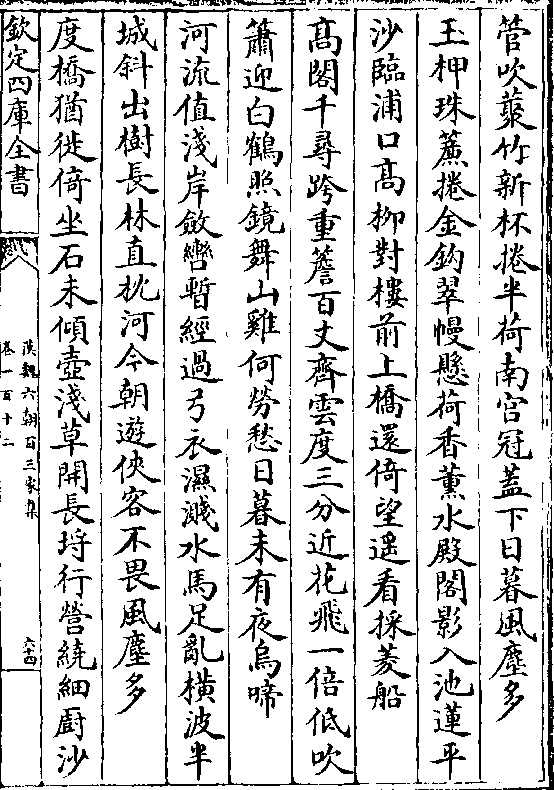 管吹䕺竹新杯捲半荷南宫冠蓋下日暮風塵多
玉柙珠簾捲金鈎翠幔懸荷香薰水殿閣影入池蓮平
沙臨浦口髙柳對樓前上橋還倚望遥看採菱船
髙閣千尋跨重簷百丈齊雲度三分近花飛一倍低吹
簫迎白鶴照鏡舞山雞何勞愁日暮未有夜烏啼
河流值淺岸斂轡暫經過弓衣濕濺水馬足亂横波半
城斜出樹長林直枕河今朝遊俠客不畏風塵多
度橋猶徙倚坐石未傾壺淺草開長埓行營繞細厨沙
欽定四庫全書
漢魏六朝百三家集
卷一百十二
六十四